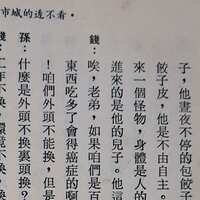 看不透的城市
子，他晝夜不停的包餃
餃子皮，他是不由自主。
來一個怪物，身體是人的
進來的是他的兒子。他這
錢：唉，老弟，如果咱們是百
東西吃多了會得癌症的啊
！咱們外頭不能換，但是
孫：什麼是外頭不換裏頭換？
工作不換，環境不換